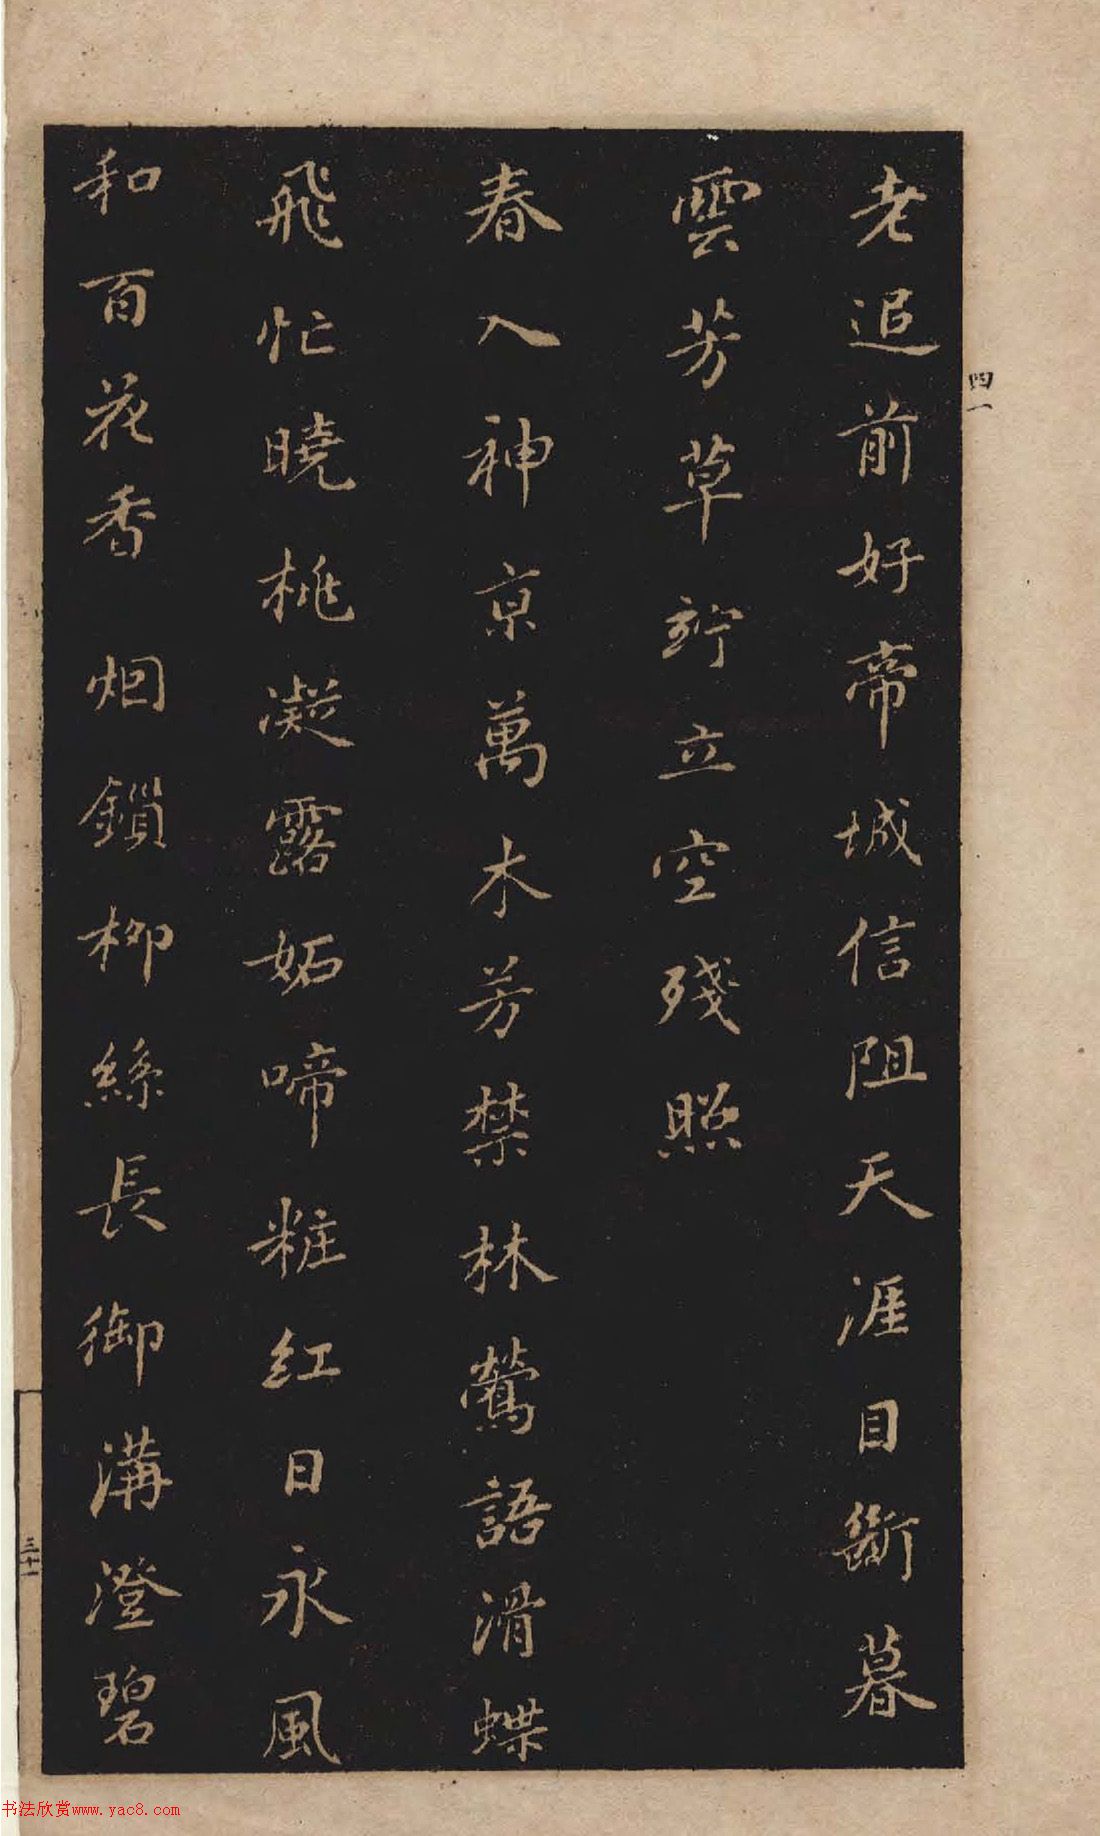 老追前好帝城信阻天涯目斷暮
雲芳草竚立空殘照
春入神京萬木芳禁林鶯語滑蝶
飛忙曉桃凝露妬啼粧紅日永風
和百花香烟鎖柳絲長御溝澄碧
四一
三十一
书法欣赏www.yac8.com